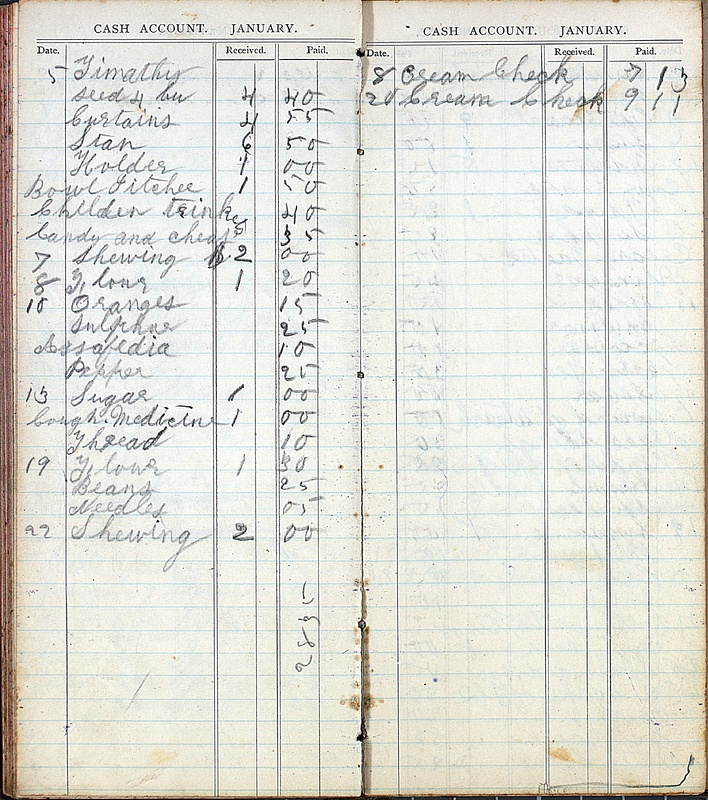 CASH ACCOUNT. JANUARY.
Date. Received. Paid.
5 Timathy
seed 4 bu 4 40
Curtains 4 55
Stan 6 50
Holder 1 00
Bowl Pitchee 1 50
Childen trinkes 40
Candy and cheas 35
7 Shewing $2 00
8 Flour 1 20
10 Oranges 15
Sulphur 25
Assafedia 10
Pepper 25
13 Sugar 1 00
Cough Medictne 1 00
Thread 10
19 Flour 1 30
Beans 25
Needles 05
22 Shewing 2 00
CASH ACCOUNT. JANUARY.
Date. Received. Paid.
8 Cream Check 7 13
20 Cream Check 9 11